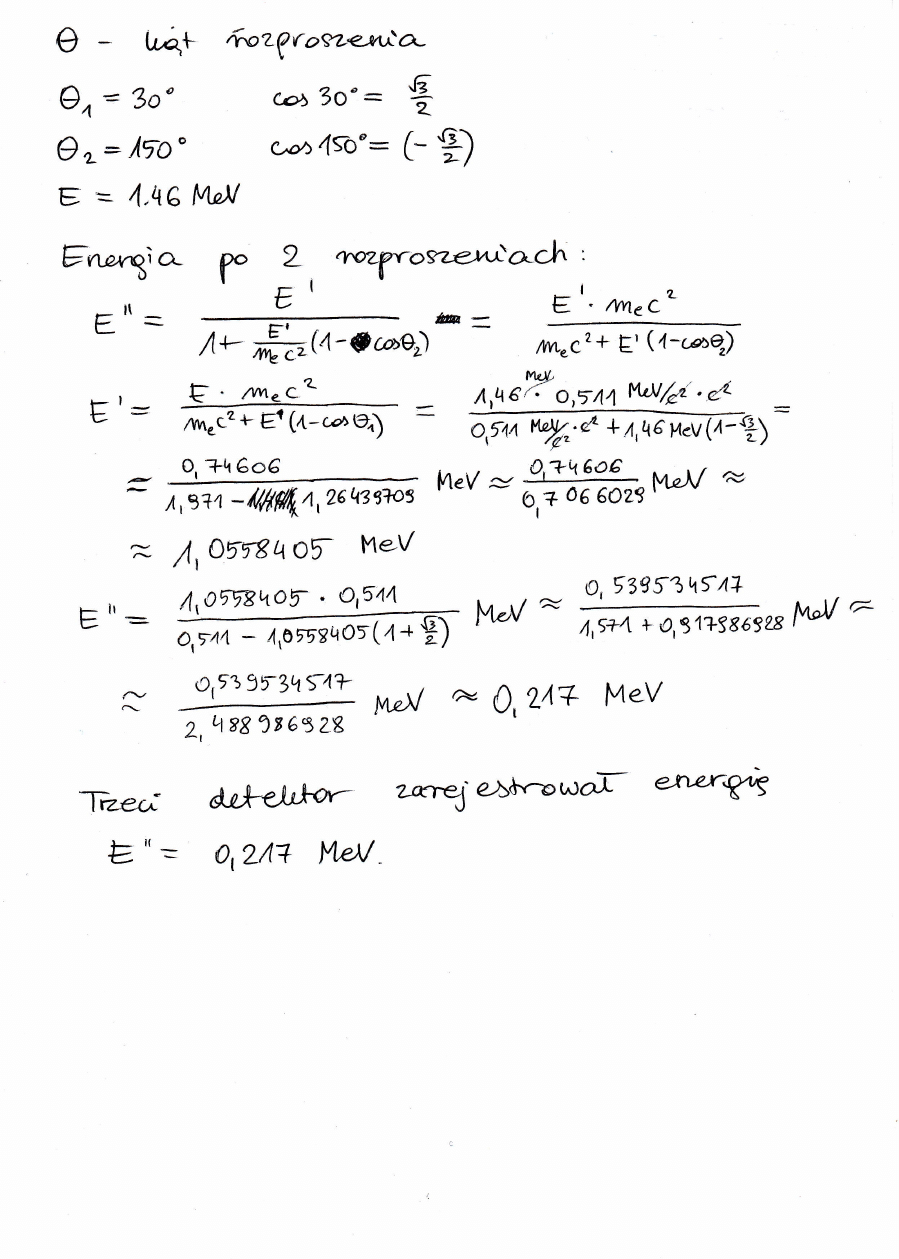 θ - kąt rozproszenia
θ₁ = 30° cos 30° = √3/2
θ₂ = 150° cos 150° = (-√3/2)
E = 1.46 MeV
Energia po 2 rozproszeniach:
E'' = E' / (1 + E'/(mₑc²) (1 - cosθ₂)) = E' · mₑc² / (mₑc² + E'(1-cosθ₂))
E' = E · mₑc² / (mₑc² + E(1-cosθ₁)) = 1,46 MeV · 0,511 MeV/c² · c² / (0,511 MeV/c² · c² + 1,46 MeV(1-√3/2)) =
= 0,74606 / (1,971 - 1,26439709) MeV ≈ 0,74606 / 0,7066029 MeV ≈
≈ 1,0558405 MeV
E'' = 1,0558405 · 0,511 / (0,511 - 1,0558405(1+√3/2)) MeV ≈ 0,539534517 / (1,571 + 0,917986928) MeV ≈
≈ 0,539534517 / 2,488986928 MeV ≈ 0,217 MeV
Trzeci detektor zarejestrował energię
E'' = 0,217 MeV.